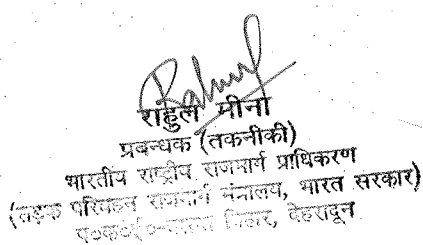 राहुल मीना
प्रबन्धक (तकनीकी)
भारतीय राष्ट्रीय राजमार्ग प्राधिकरण
(सड़क परिवहन राजमार्ग मंत्रालय, भारत सरकार)
देहरादून